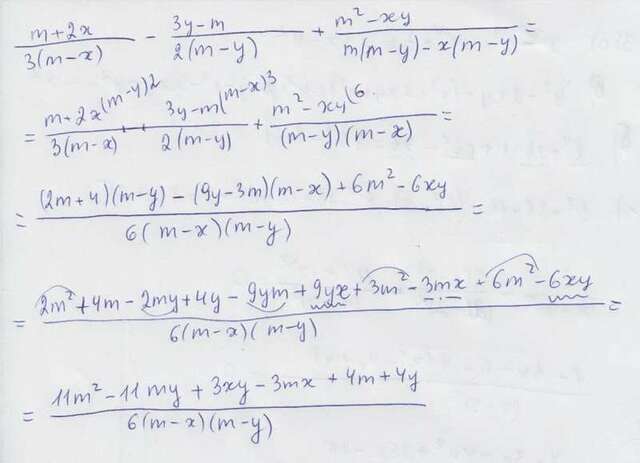 (m+2x)/(3(m-x)) - (3y-m)/(2(m-y)) + (m²-xy)/(m(m-y)-x(m-y)) =
= (m+2x^(m-y)2)/(3(m-x)) - (3y-m^(m-x)3)/(2(m-y)) + (m²-xy^(6)/((m-y)(m-x)) =
= ((2m+4)(m-y) - (9y-3m)(m-x) + 6m²-6xy)/(6(m-x)(m-y)) =
= (2m²+4m-2my+4y-9ym+9yx+3m²-3mx+6m²-6xy)/(6(m-x)(m-y)) =
= (11m²-11my+3xy-3mx+4m+4y)/(6(m-x)(m-y))